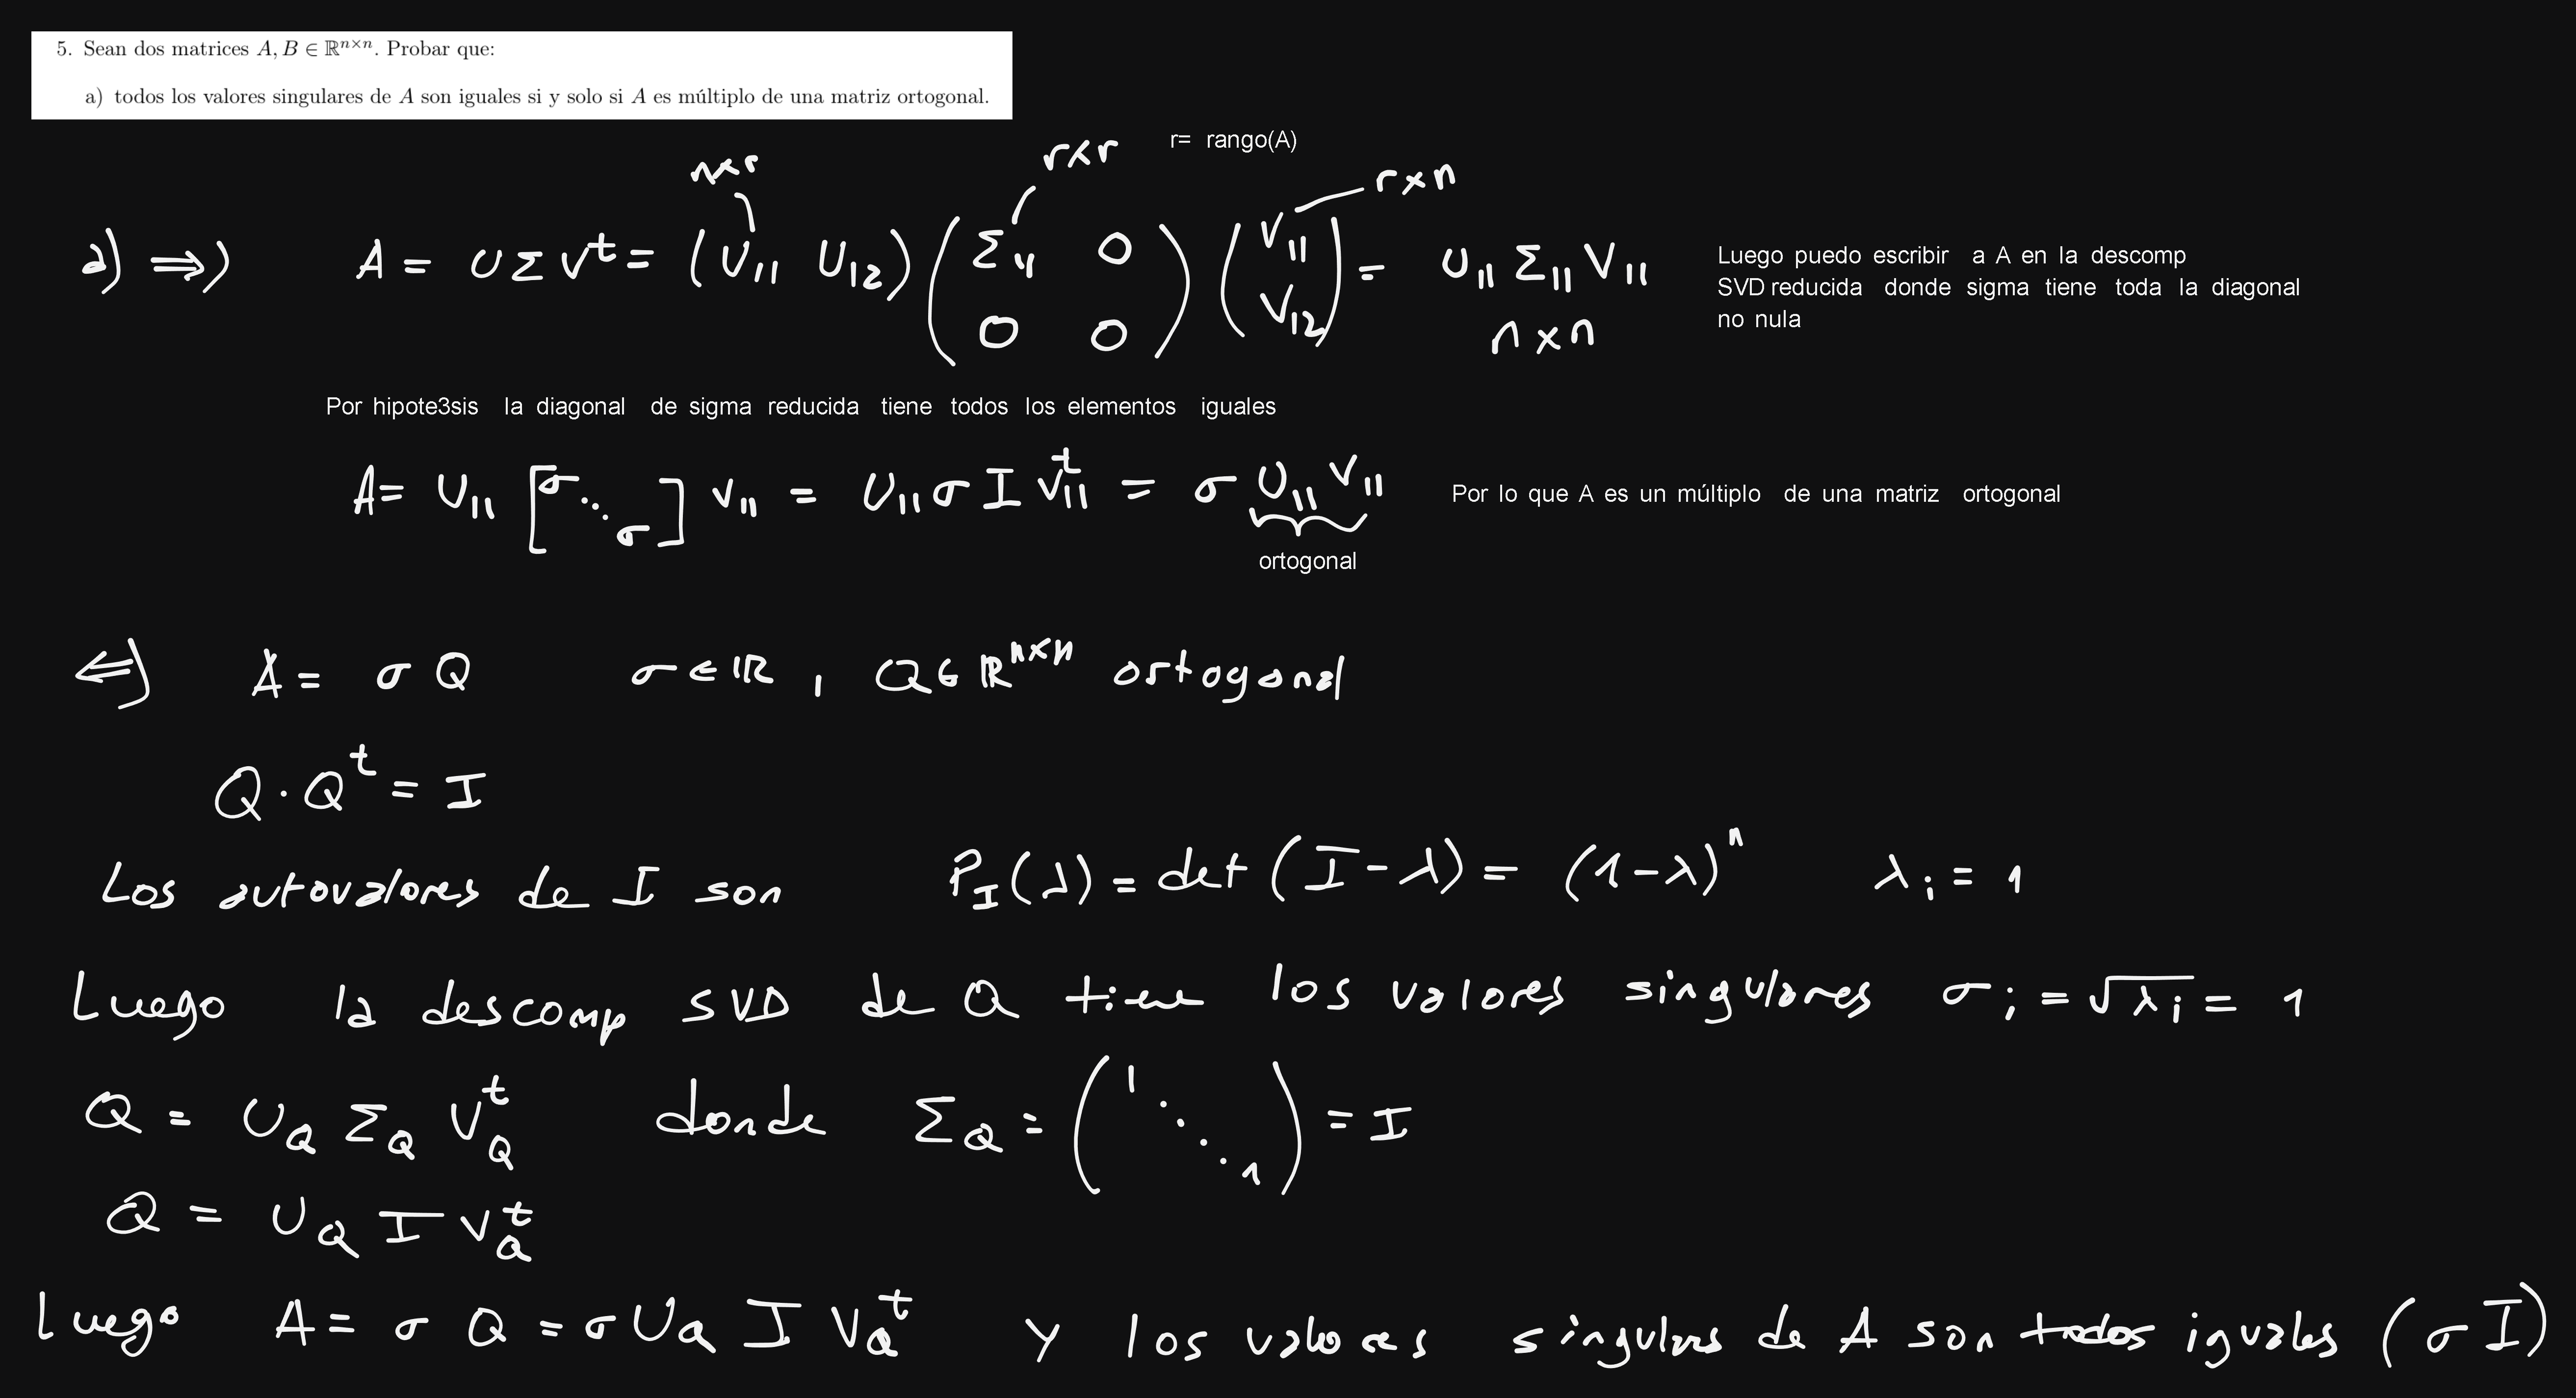 5. Sean dos matrices A, B ∈ ℝⁿˣⁿ. Probar que:
a) todos los valores singulares de A son iguales si y solo si A es múltiplo de una matriz ortogonal.
r= rango(A)
n×r r×r r×n
a) ⇒) A = U Σ Vᵗ = (U₁₁ U₁₂) (Σ₁₁ 0 0 0) (V₁₁ V₁₂) = U₁₁ Σ₁₁ V₁₁
n×n
Luego puedo escribir a A en la descomp
SVD reducida donde sigma tiene toda la diagonal
no nula
Por hipote3sis la diagonal de sigma reducida tiene todos los elementos iguales
A = U₁₁ [σ ⋱ σ] V₁₁ = U₁₁ σ I V₁₁ᵗ = σ U₁₁ V₁₁ Por lo que A es un múltiplo de una matriz ortogonal
ortogonal
⇐) A = σ Q σ ∈ ℝ , Q ∈ ℝⁿˣⁿ ortogonal
Q · Qᵗ = I
Los autovalores de I son P_I(λ) = det (I - λ) = (1-λ)ⁿ λᵢ = 1
Luego la descomp SVD de Q tiene los valores singulares σᵢ = √λᵢ = 1
Q = U_Q Σ_Q V_Qᵗ donde Σ_Q = (1 ⋱ 1) = I
Q = U_Q I V_Qᵗ
Luego A = σ Q = σ U_Q I V_Qᵗ y los valores singulares de A son todos iguales (σ I)